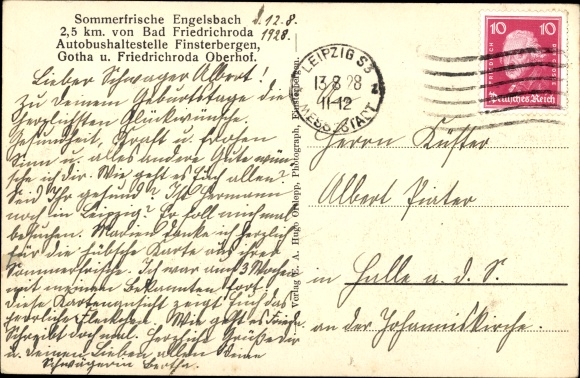 Sommerfrische Engelsbach
2,5 km. von Bad Friedrichroda
Autobushaltestelle Finsterbergen,
Gotha u. Friedrichroda Oberhof.
d. 12.8.
1928.
Lieber Schwager Albert!
Zu Deinem Geburtstage die
herzlichsten Glückwünsche.
Gesundheit, Kraft u. frohen
Sinn u. alles andere Gute wün-
sche ich Dir. Wie geht es Euch allen?
Seid Ihr gesund? Ist Hermann
noch in Leipzig? Er soll mich mal
besuchen. Marien danke ich herzlich
für die hübsche Karte aus ihrer
Sommerfrische. Ich war auch 3 Wochen
mit meinen Bekannten fort.
Diese Kartenansicht zeigt Euch das
herrliche Fleckchen. Wie geht es Friede.
Schreibt doch mal. Herzliche Grüße Dir
u. Deinen Lieben allen Deine
Schwägerin Bertha.
Verlag E. A. Hugo Ortlepp, Photograph, Finsterbergen.
LEIPZIG S3
13.8 28
11-12
MESSESTADT
10 10
Deutsches Reich
Herrn Küster
Albert Pinter
in Halle a. d. S.
an der Johanniskirche.